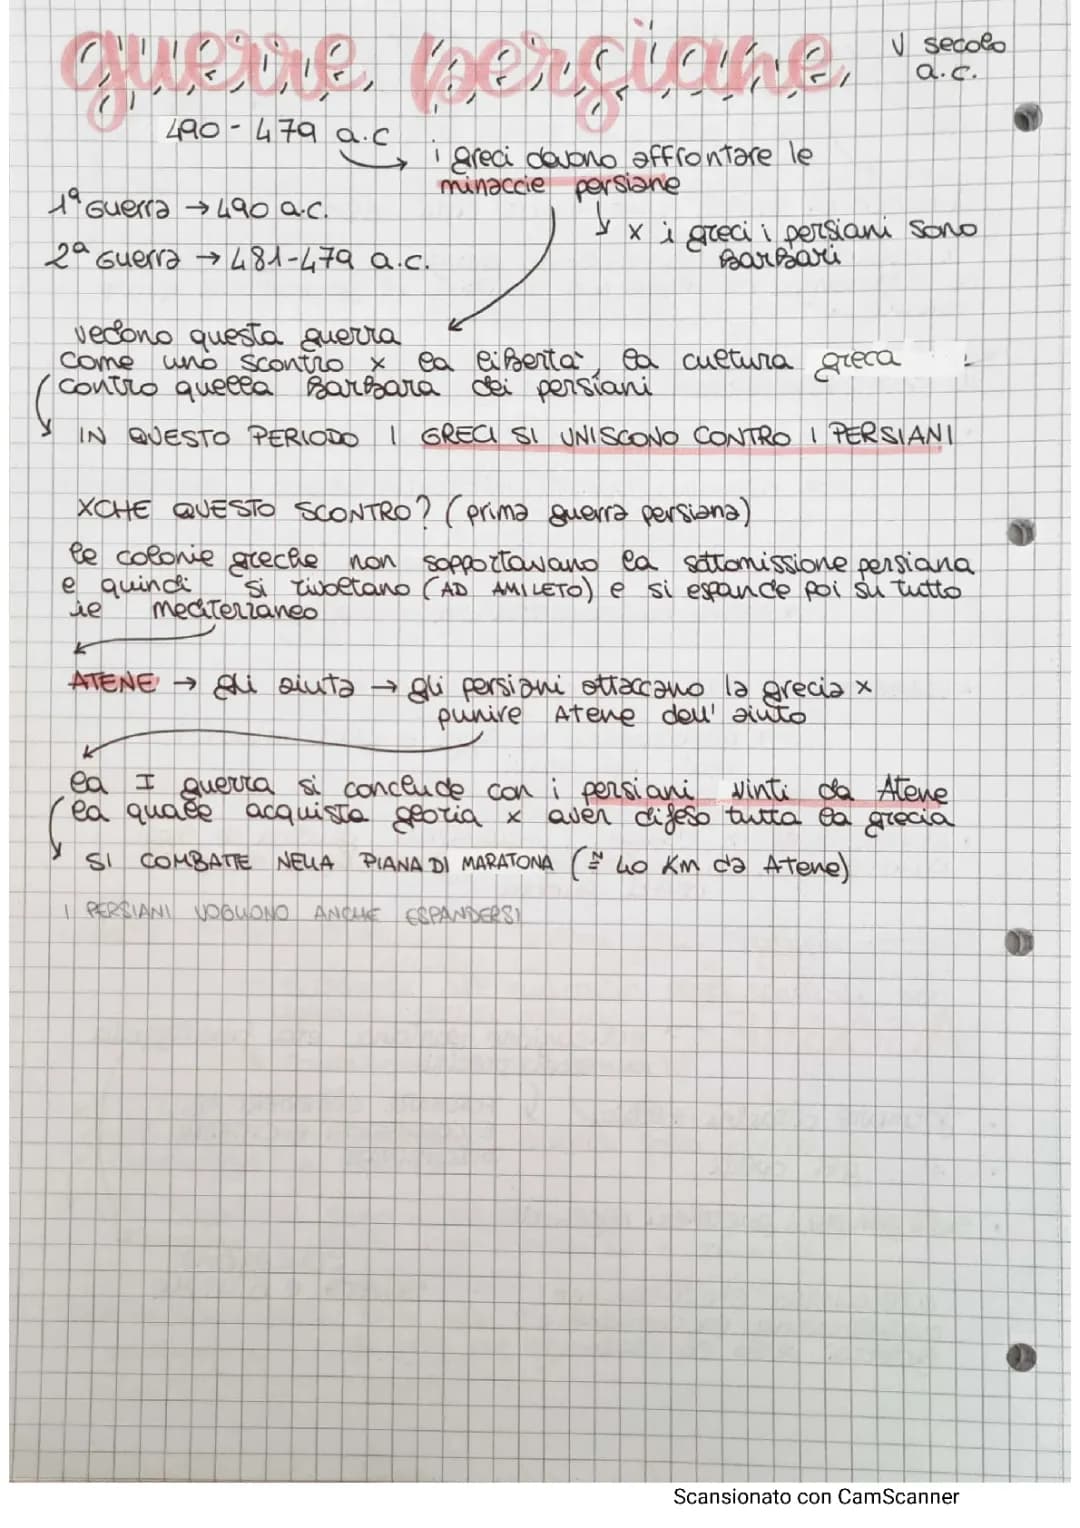 guerre persiane
V secolo
a.C.
490 - 479 a.C
i greci devono affrontare le
minaccie persiane
1ª Guerra → 490 a.C.
x i greci i persiani sono
Barbari
2ª Guerra → 481-479 a.C.
vedono questa guerra
come uno scontro x la libertà, la cultura greca
contro quella Barbara dei persiani
IN QUESTO PERIODO I GRECI SI UNISCONO CONTRO I PERSIANI
XCHE QUESTO SCONTRO? (prima guerra persiana)
le colonie greche non sopportavano la sottomissione persiana
e quindi si rivoltano (AD AMILETO) e si espande poi su tutto
il mediterraneo
ATENE → gli aiuta → gli persiani attaccano la grecia x
punire Atene dell' aiuto
la I guerra si conclude con i persiani vinti da Atene
la quale acquista gloria x aver difeso tutta la grecia
SI COMBATTE NELLA PIANA DI MARATONA (≅ 40 Km da Atene)
I PERSIANI VOGLIONO ANCHE ESPANDERSI
Scansionato con CamScanner